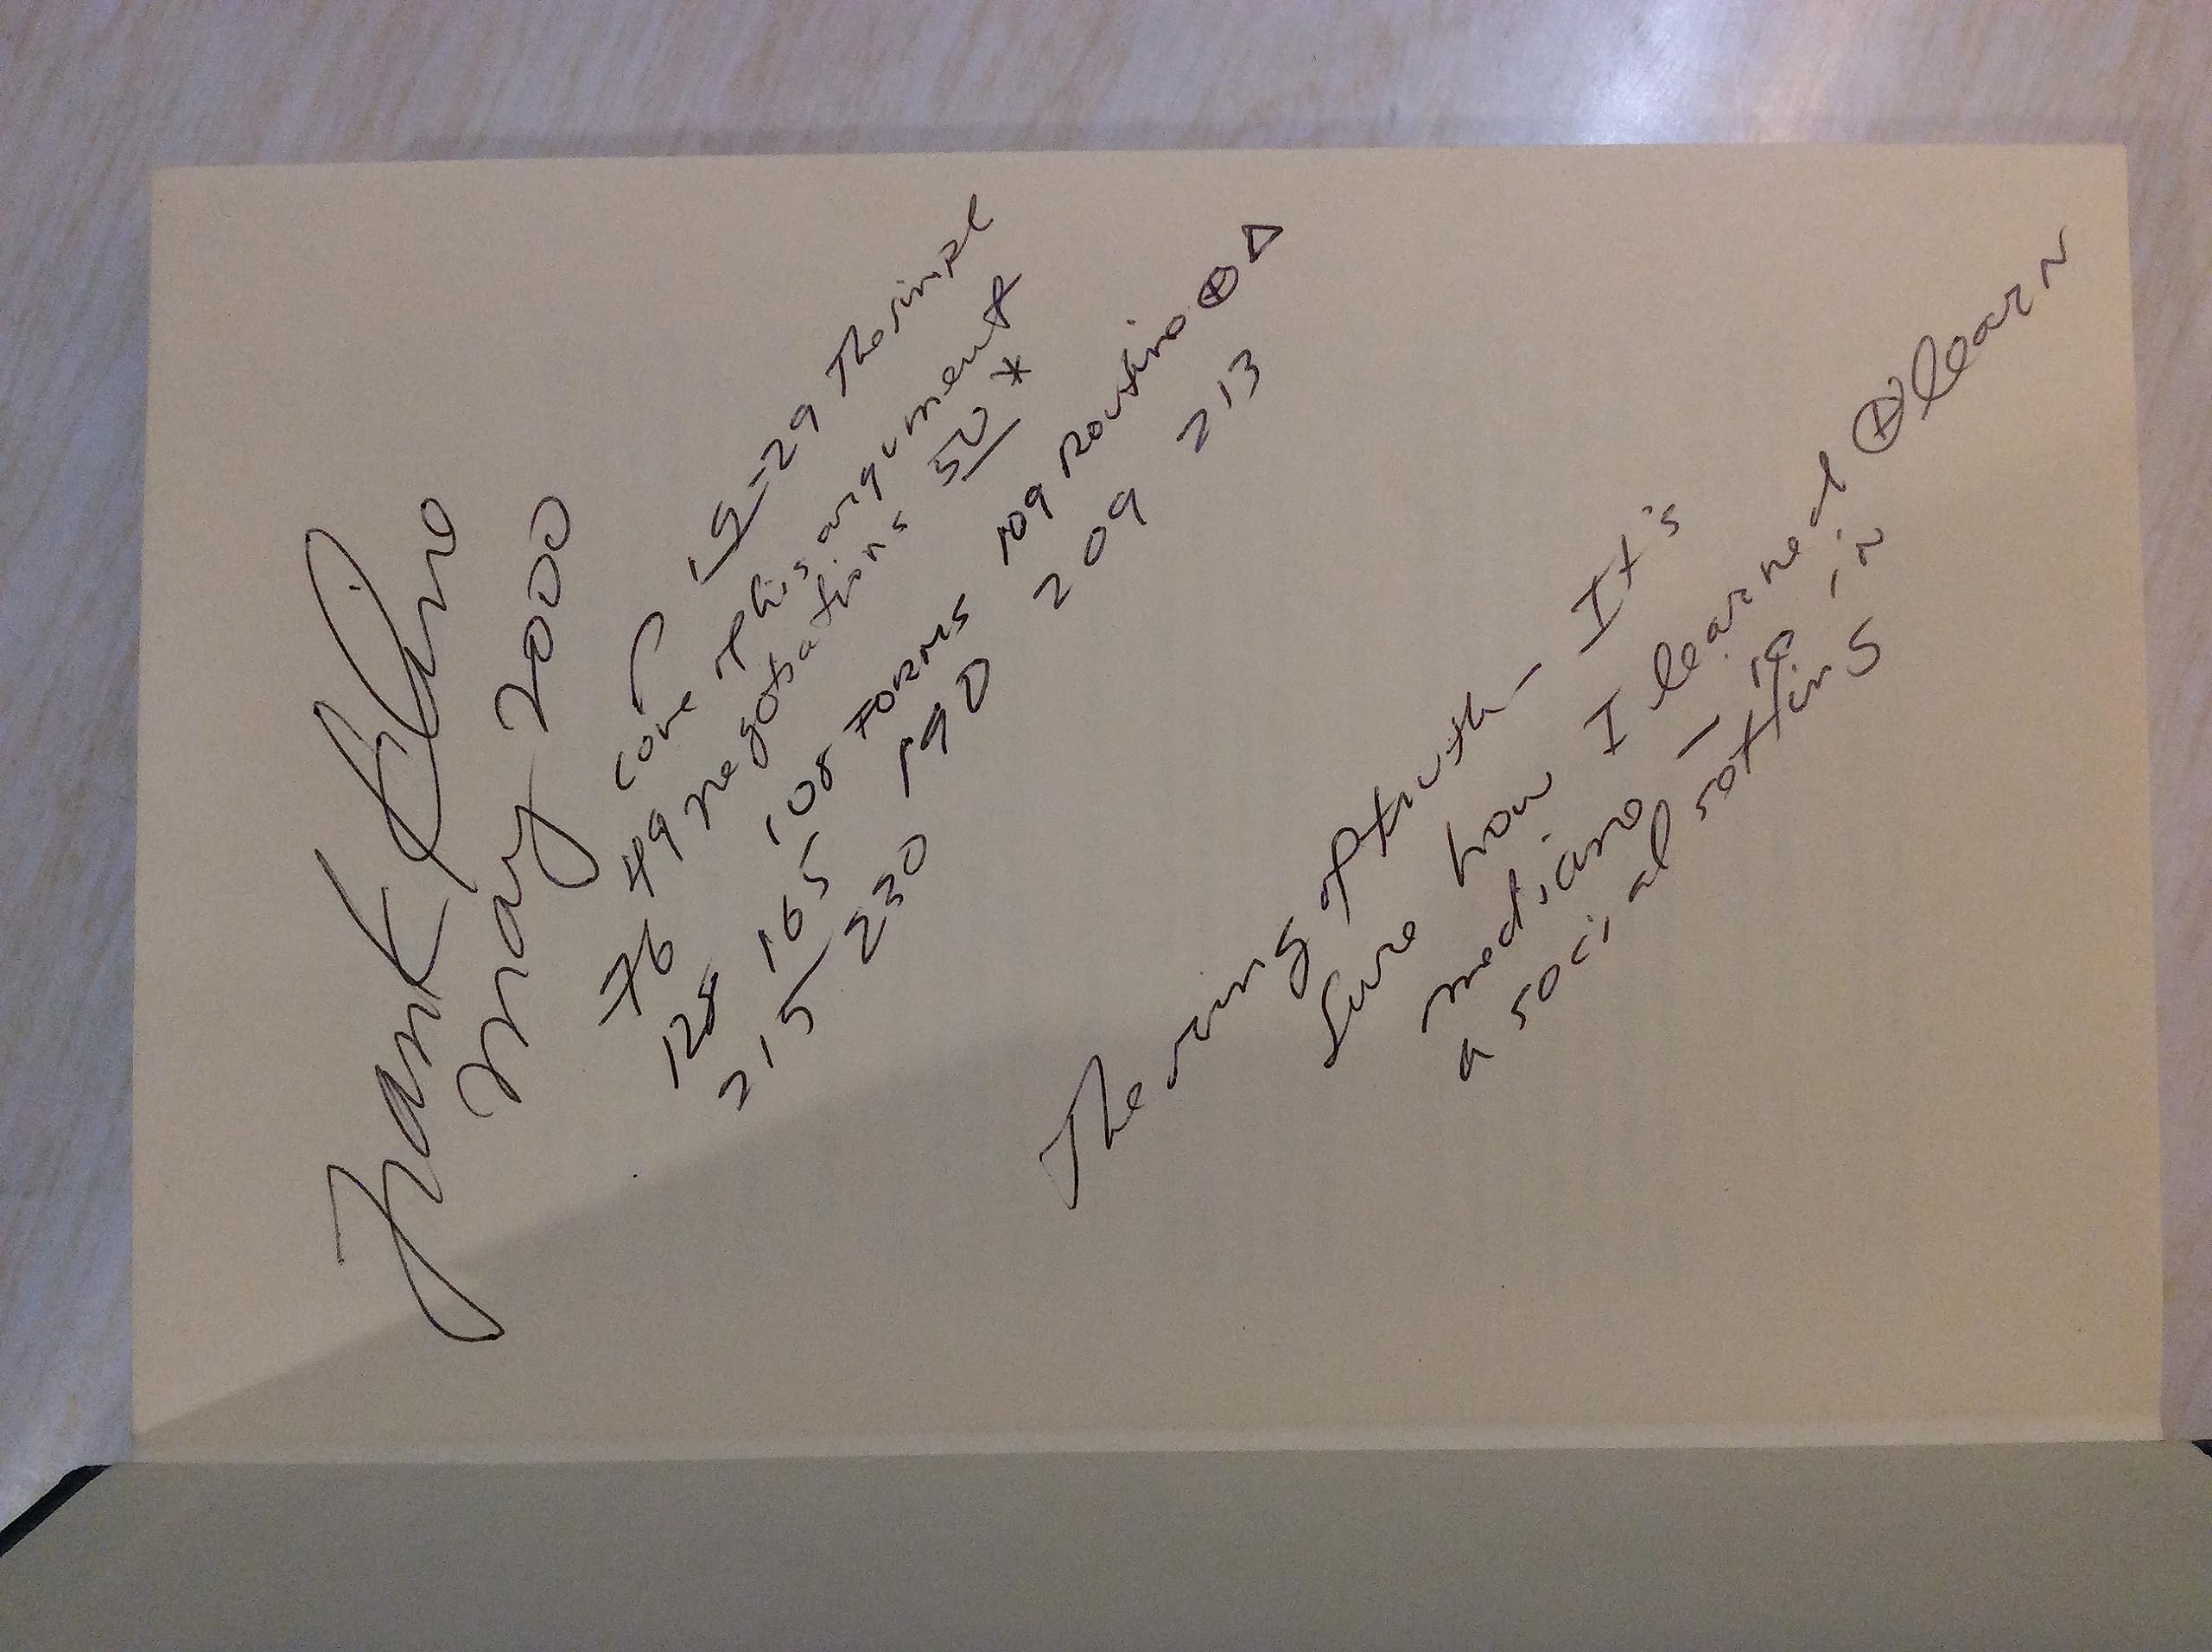 Frank Kline
May 2000
15-29 The simpl
core of this argument
49 negotiations 50 *
76 108 FORMS 109 Routine ⊕ Δ
128 165 190 209 213
215 230
The ring of truth - It's
sure how I learned ⊕ learn
medicine - ie in
a social setting